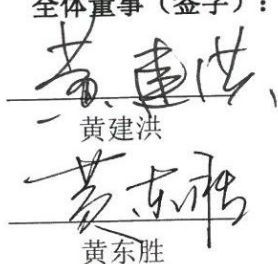 全体董事（签字）：
黄建洪
黄建洪
黄东胜
黄东胜